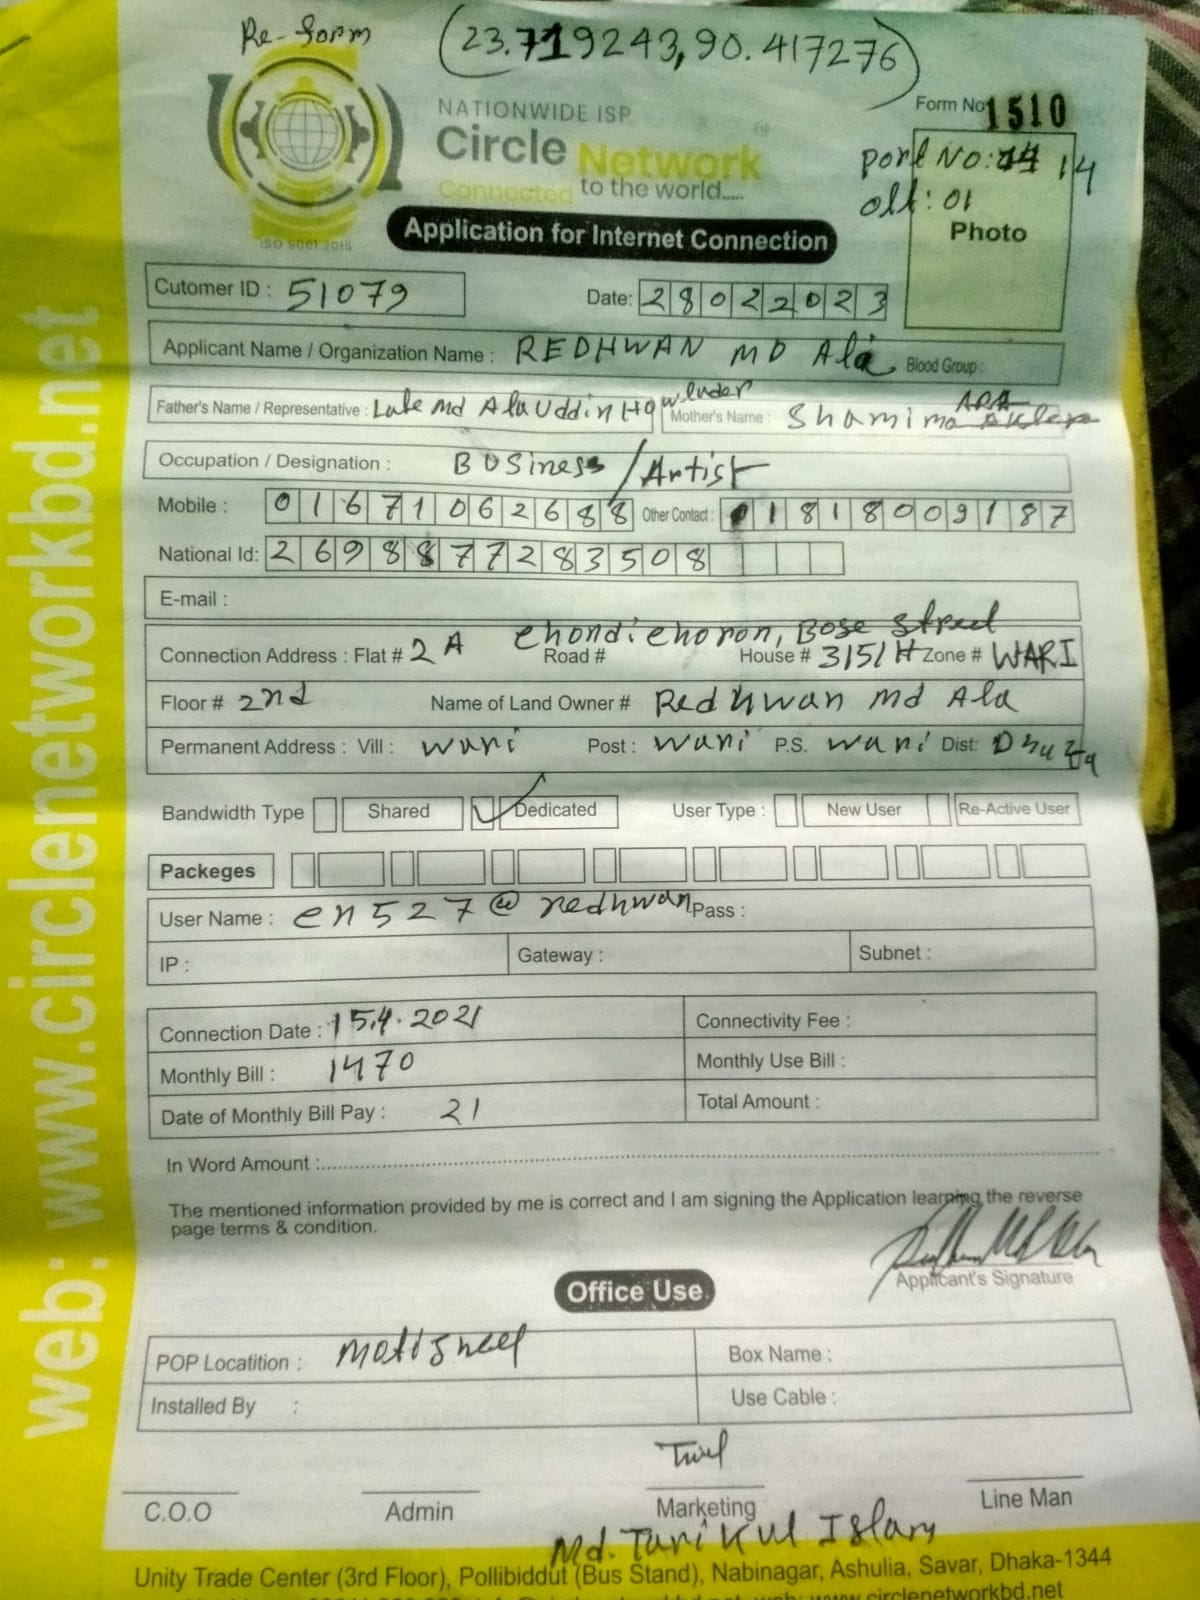 Re-form (23.719243,90.417276)
NATIONWIDE ISP
Form No 1510
Circle Network
Connected to the world.....
Port No: 14
olt: 01
Photo
ISO 9001:2015
Application for Internet Connection
Cutomer ID : 51079 Date: 28022023
Applicant Name / Organization Name : REDHWAN MD Ala Blood Group :
Father's Name / Representative : Late Md Ala Uddin Mother's Name : Shamima
Occupation / Designation : BUSiness / Artist
Mobile : 01671062688 Other Contact : 01818009187
National Id: 2698877283508
E-mail :
chondichoron, Bose street
Connection Address : Flat # 2 A Road # House # 315/H Zone # WARI
Floor # 2nd Name of Land Owner # Redhwan Md Ala
Permanent Address : Vill : wari Post : wari P.S. wari Dist: Dhaka
Bandwidth Type Shared Dedicated User Type : New User Re-Active User
Packeges
User Name : en527@redhwan Pass :
IP : Gateway : Subnet :
Connection Date : 15.4.2021 Connectivity Fee :
Monthly Bill : 1470 Monthly Use Bill :
Date of Monthly Bill Pay : 21 Total Amount :
In Word Amount :
The mentioned information provided by me is correct and I am signing the Application learning the reverse
page terms & condition.
Applicant's Signature
Office Use
POP Locatition : Motijheel Box Name :
Installed By : Use Cable :
C.O.O Admin Marketing Line Man
Md. Tarikul Islam
Unity Trade Center (3rd Floor), Pollibiddut (Bus Stand), Nabinagar, Ashulia, Savar, Dhaka-1344
web: www.circlenetworkbd.net
web: www.circlenetworkbd.net